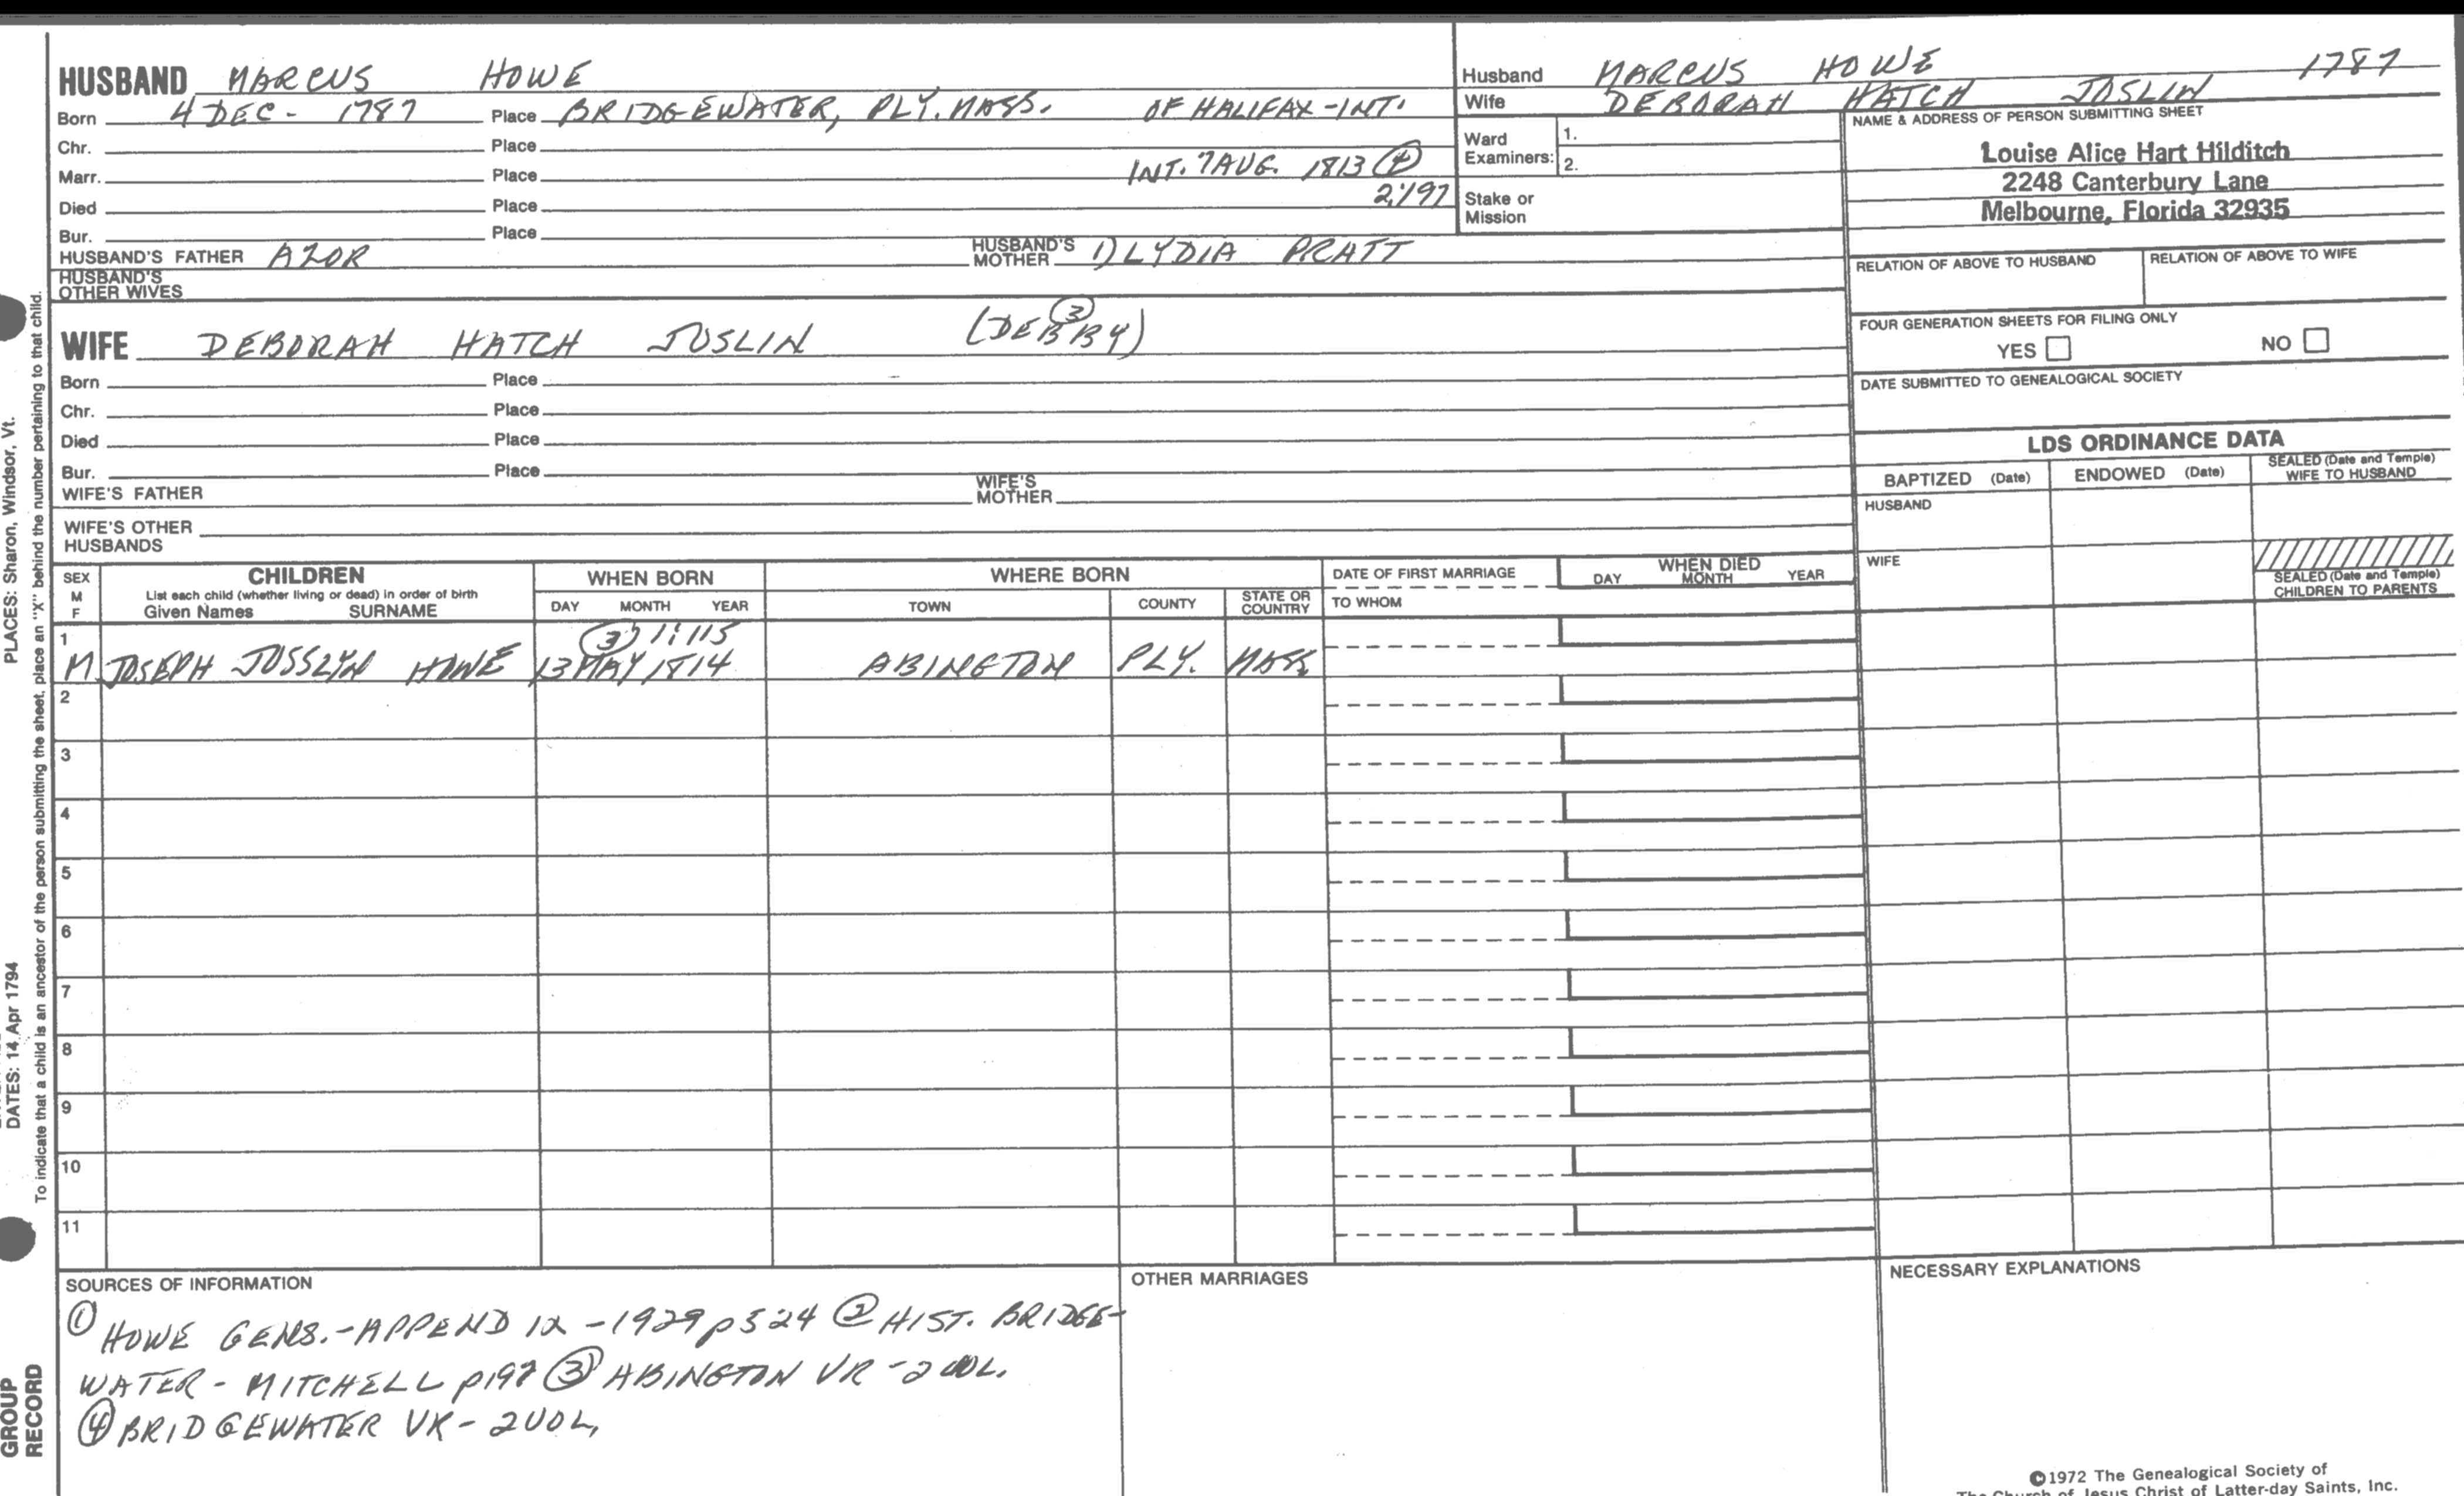 HUSBAND MARCUS HOWE
Born 4 DEC - 1787 Place BRIDGEWATER, PLY. MASS. OF HALIFAX-INT.
Chr. Place
Marr. Place INT. 7 AUG. 1813 ④
Died Place 2:197
Bur. Place
HUSBAND'S FATHER AZOR HUSBAND'S MOTHER 1) LYDIA PRATT
HUSBAND'S OTHER WIVES
Husband MARCUS HOWE 1787
Wife DEBORAH HATCH JOSLIN
Ward Examiners: 1.
2.
Stake or Mission
NAME & ADDRESS OF PERSON SUBMITTING SHEET
Louise Alice Hart Hilditch
2248 Canterbury Lane
Melbourne, Florida 32935
RELATION OF ABOVE TO HUSBAND RELATION OF ABOVE TO WIFE
FOUR GENERATION SHEETS FOR FILING ONLY
YES NO
DATE SUBMITTED TO GENEALOGICAL SOCIETY
WIFE DEBORAH HATCH JOSLIN (DEBBY) ③
Born Place
Chr. Place
Died Place
Bur. Place
WIFE'S FATHER WIFE'S MOTHER
WIFE'S OTHER HUSBANDS
LDS ORDINANCE DATA
BAPTIZED (Date) ENDOWED (Date) SEALED (Date and Temple) WIFE TO HUSBAND
HUSBAND
WIFE
SEALED (Date and Temple) CHILDREN TO PARENTS
SEX M F
CHILDREN
List each child (whether living or dead) in order of birth
Given Names SURNAME
WHEN BORN
DAY MONTH YEAR
WHERE BORN
TOWN COUNTY STATE OR COUNTRY
DATE OF FIRST MARRIAGE
TO WHOM
WHEN DIED
DAY MONTH YEAR
1 ③ 1:115
M JOSEPH JOSSLYN HOWE 13 MAY 1814 ABINGTON PLY. MASS
2
3
4
5
6
7
8
9
10
11
SOURCES OF INFORMATION
① HOWE GENS.-APPENDIX -1929 p524 ② HIST. BRIDGE-
WATER - MITCHELL p197 ③ ABINGTON VR -2 VOL.
④ BRIDGEWATER VR - 2 VOL.
OTHER MARRIAGES
NECESSARY EXPLANATIONS
©1972 The Genealogical Society of
The Church of Jesus Christ of Latter-day Saints, Inc.
PLACES: Sharon, Windsor, Vt.
DATES: 14 Apr 1794
To indicate that a child is an ancestor of the person submitting the sheet, place an "X" behind the number pertaining to that child.
GROUP
RECORD